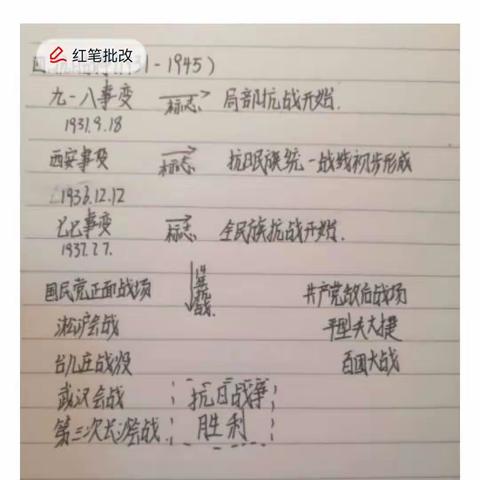 红笔批改
1-1945)
九一八事变 标志 局部抗战开始.
1931.9.18
西安事变 标志 抗日民族统一战线初步形成
1936.12.12
七七事变 标志 全民族抗战开始.
1937.7.7.
国民党正面战场 共产党敌后战场
淞沪会战 平型关大捷
台儿庄战役 百团大战
武汉会战 抗日战争
第三次长沙会战 胜利